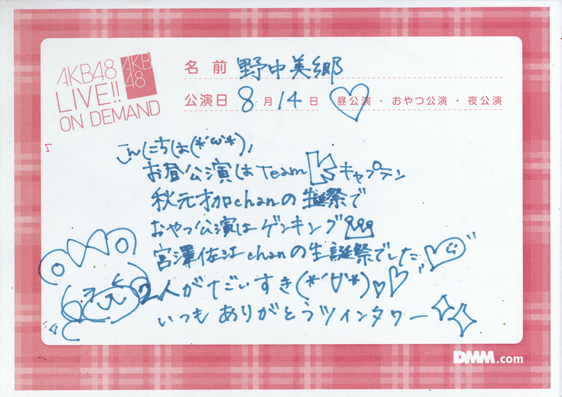 AKB48
LIVE!!
ON DEMAND
AKB
48
名前 野中美郷
公演日 8月14日 昼公演・おやつ公演・夜公演
こんにちは(*'ω'*)،
お昼公演はTeam Kキャプテン
秋元才加chanの生誕祭で
おやつ公演はゲンキング
宮澤佐江chanの生誕祭でした
2人がだいすき(*'∀'*)
いつもありがとうツインタワー
DMM.com